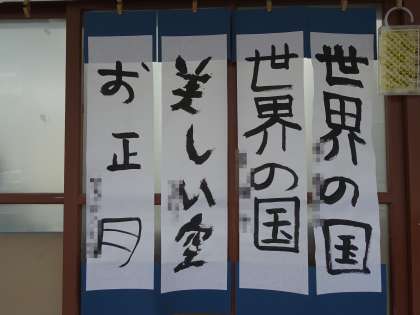 世界の国
世界の国
美しい空
お正月